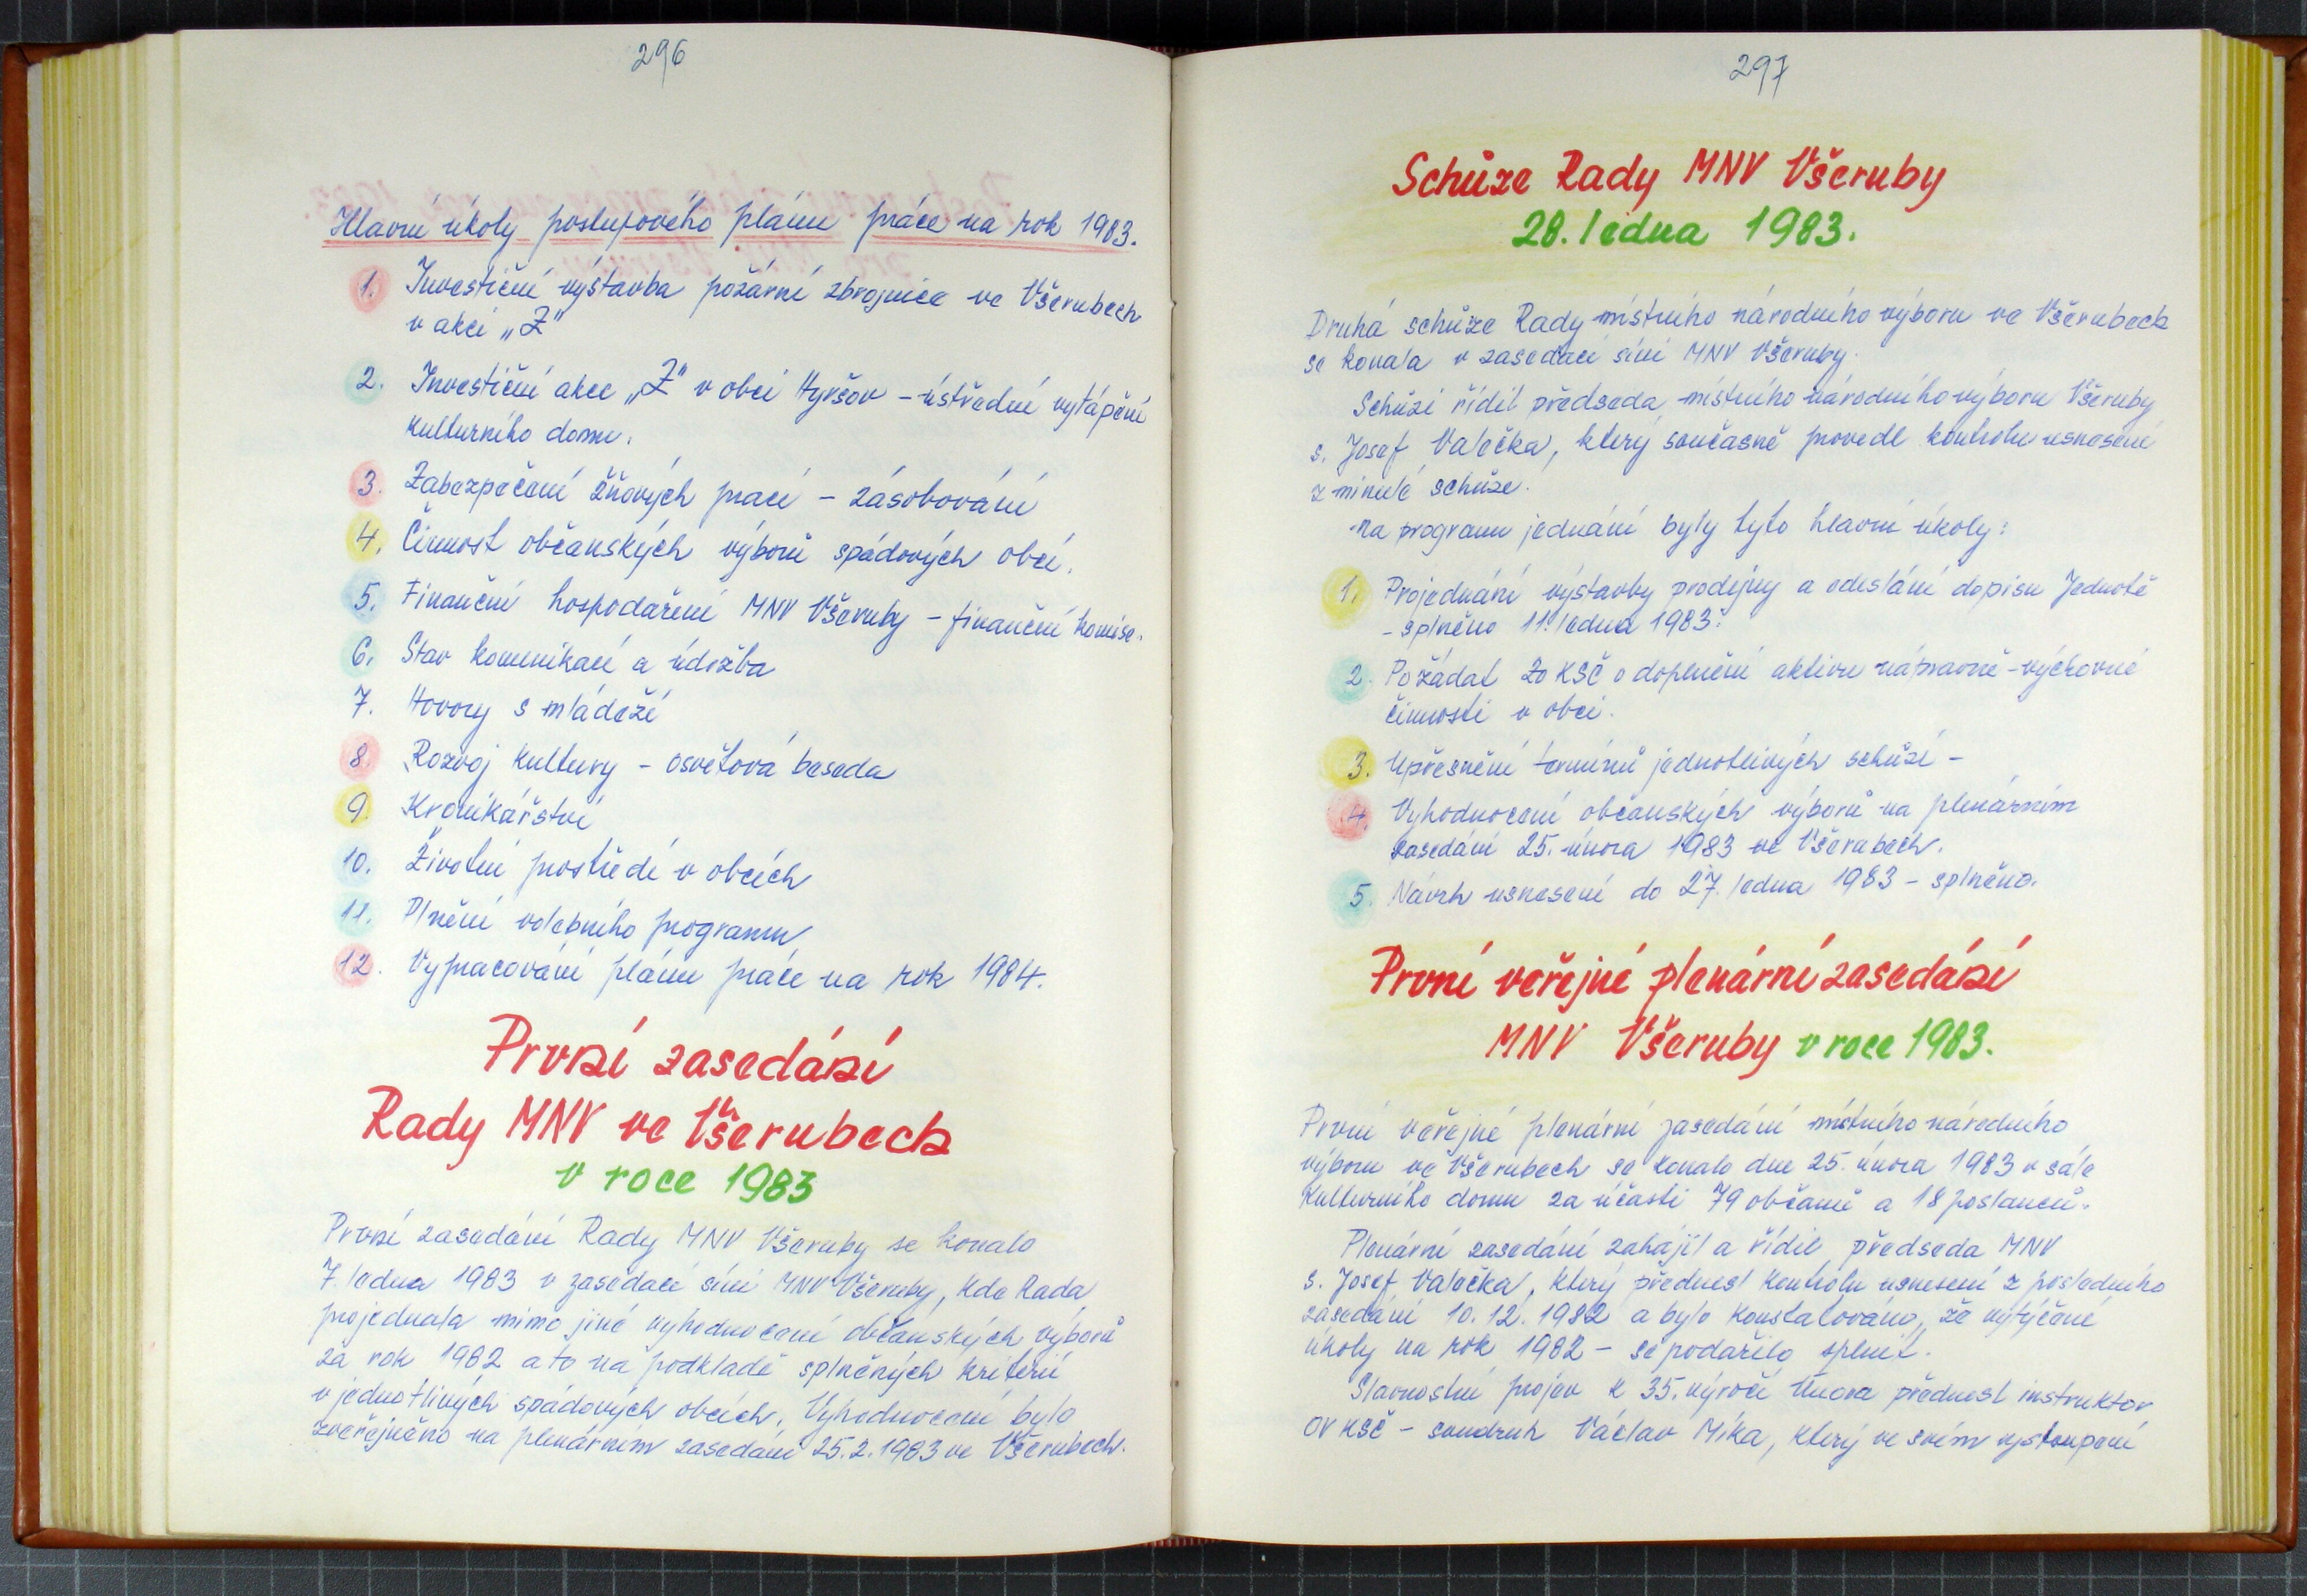 296
Hlavní úkoly postupového plánu práce na rok 1983.
1. Investiční výstavba požární zbrojnice ve Všerubech
v akci „Z"
2. Investiční akce „Z" v obci Hyršov - ústřední vytápění
kulturního domu.
3. Zabezpečení žňových prací - zásobování
4. Činnost občanských výborů spádových obcí.
5. Finanční hospodaření MNV Všeruby - finanční komise.
6. Stav komunikací a údržba
7. Hovory s mládeží
8. Rozvoj kultury - osvětová beseda
9. Kronikářství
10. Životní prostředí v obcích
11. Plnění volebního programu
12. Vypracování plánu práce na rok 1984.
První zasedání
Rady MNV ve Všerubech
v roce 1983
První zasedání Rady MNV Všeruby se konalo
7. ledna 1983 v zasedací síni MNV Všeruby, kde Rada
projednala mimo jiné vyhodnocení občanských výborů
za rok 1982 a to na podkladě splněných kriterií
v jednotlivých spádových obcích. Vyhodnocení bylo
zveřejněno na plenárním zasedání 25.2.1983 ve Všerubech.
297
Schůze Rady MNV Všeruby
28. ledna 1983.
Druhá schůze Rady místního národního výboru ve Všerubech
se konala v zasedací síni MNV Všeruby.
Schůzi řídil předseda místního národního výboru Všeruby
s. Josef Valečka, který současně provedl kontrolu usnesení
z minulé schůze.
Na programu jednání byly tyto hlavní úkoly:
1. Projednání výstavby prodejny a odeslání dopisu Jednotě
- splněno 11. ledna 1983.
2. Požádat ZO KSČ o doplnění aktivu nápravně-výchovné
činnosti v obci.
3. Upřesnění termínů jednotlivých schůzí -
4. Vyhodnocení občanských výborů na plenárním
zasedání 25. února 1983 ve Všerubech.
5. Návrh usnesení do 27. ledna 1983 - splněno.
První veřejné plenární zasedání
MNV Všeruby v roce 1983.
První veřejné plenární zasedání místního národního
výboru ve Všerubech se konalo dne 25. února 1983 v sále
Kulturního domu za účasti 79 občanů a 18 poslanců.
Plenární zasedání zahájil a řídil předseda MNV
s. Josef Valečka, který přednesl kontrolu usnesení z posledního
zasedání 10.12.1982 a bylo konstatováno, že vytýčené
úkoly na rok 1982 - se podařilo splnit.
Slavnostní projev k 35. výročí Února přednesl instruktor
OV KSČ - soudruh Václav Míka, který ve svém vystoupení